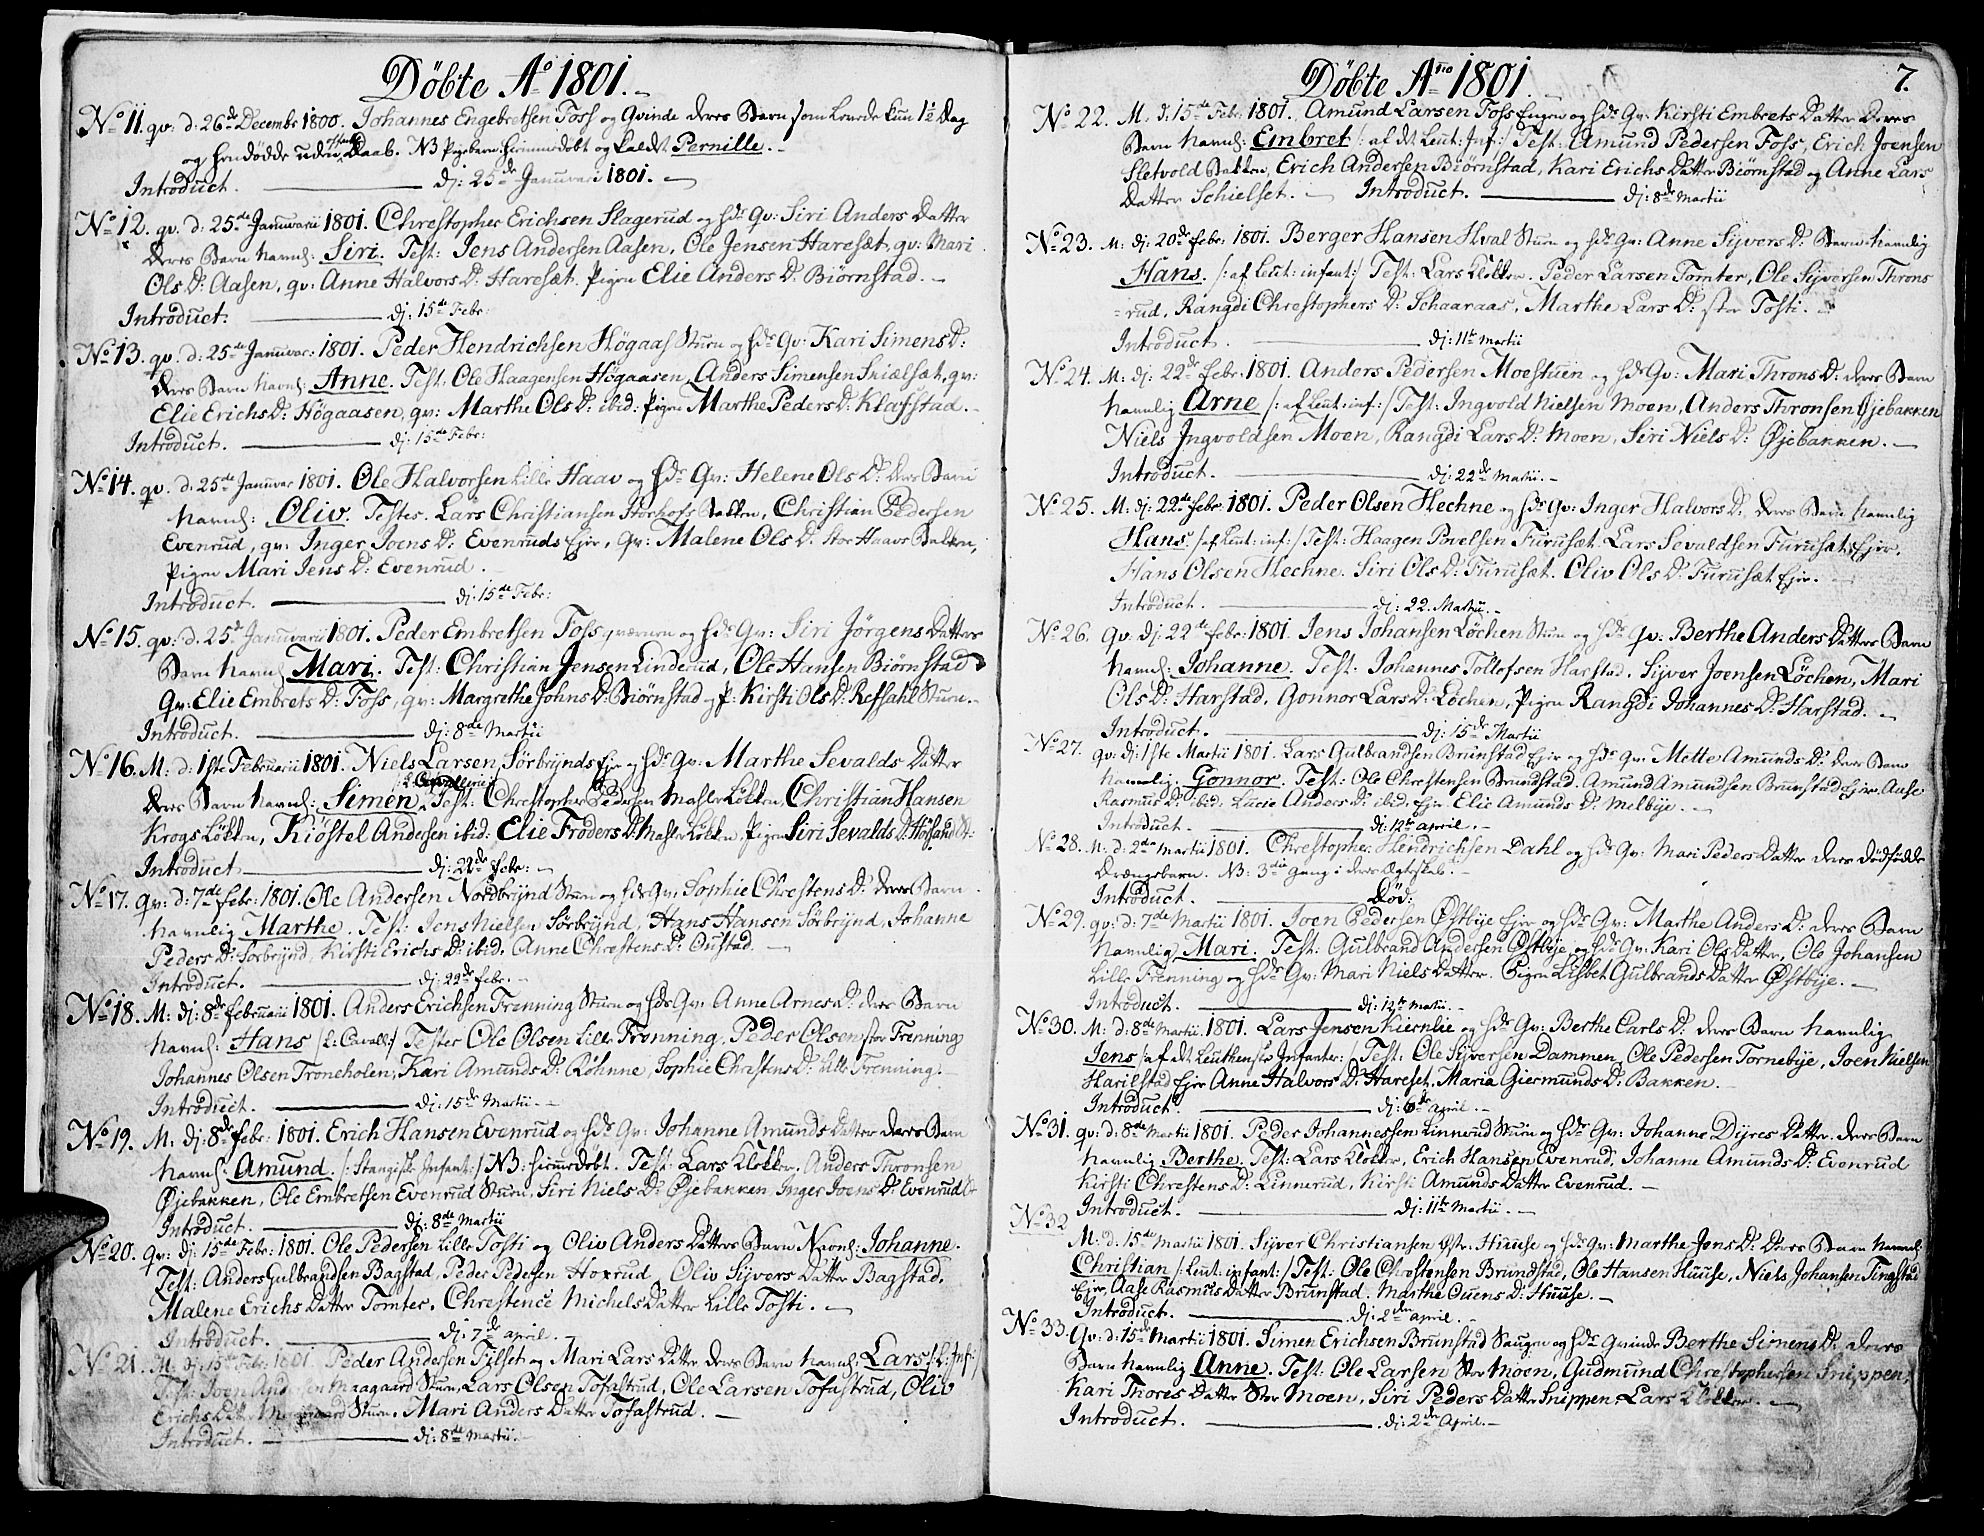 Döbte Aº 1801.
Nº 11. qv: d: 26de Decembr 1800. Johannes Engebretsen Foss og Qvinde deres Barn som levede kun 1½ Dag
og hendöde uden Daab. NB Pigebarn: hiemmedöbt og kaldet Pernille.
Introduct. dj: 25de Januarii 1801.
Nº 12. qv. d: 25de Januarii 1801. Chrestopher Erichsen Slagerud og hds qv: Siri Anders Datter
deres Barn navnl: Siri. Test: Jens Andersen Aasen, Ole Jensen Haresæt, qv: Mari
Ols D: Aasen, qv: Anne Halvors D: Haresæt. Pigen Elie Anders D: Biörnstad.
Introduct: dj: 15de Febr:
Nº 13. qv. d: 25de Januar: 1801. Peder Hendrichsen Högaas Stuen og hds Qv: Kari Simens D:
deres Barn navnl: Anne. Test: Ole Haagensen Högaasen, Anders Simensen Skiælsæt, qv:
Elie Erichs D: Högaasen, qv: Marthe Ols D: ibid: Pigen Marthe Peders D: Klafstad.
Introduct. dj: 15de Febr:
Nº 14. qv. d: 25de Januar 1801. Ole Halvorsen Lille Haav og hds Qv: Helene Ols D: deres Barn
navnl: Oliv. Testes. Lars Christiansen Horhofs Bakken, Christian Pedersen
Evenrud, qv: Inger Joens D: Evenruds Ejer, qv: Malene Ols D: Stor Haavs Bakken,
Pigen Mari Jens D: Evenrud.
Introduct. dj: 15de Febr:
Nº 15. qv: d: 25de Januarii 1801. Peder Embretsen Foss qværnen og hds Qv: Siri Jörgens Datters
Barn navnl: Mari. Test: Christian Jensen Linderud, Ole Hansen Biörnstad
Qv: Elie Embrets D: Foss, qv: Margrethe Johns D: Biörnstad og P: Kirsti Ols D: Refsahl Stuen.
Introduct. dj: 8de Martii
Nº 16. M: d: 1ste Februarii 1801. Niels Larsen Sörbrÿnds Ejer og hds Qv: Marthe Sevalds Datter
deres Barn navnl: Simen. /: L: Cavallerie :/ Test: Chrestopher Pedersen Masler Lökken, Christian Hansen
Krogs Lökken, Kiöstel Andersen ibid: Elie Froders D: Masler Lökken, Pigen Siri Sevalds D:
Introduct dj: 22de Febr:
Nº 17. Qv: d: 7de Febr: 1801. Ole Andersen Nordbrÿnd Stuen og hds Qv: Sophie Chrestens D: deres Barn
navnlig Marthe. Test: Jens Nielsen Sörbrÿnd, Hans Hansen Sörbrÿnd, Johanne
Peders D: Sörbrÿnd, Kirsti Erichs D: ibid. Anne Chrestens D: Oustad.
Introduct. dj: 22de Febr.
Nº 18. M: dj: 8de Februarii 1801. Anders Erichsen Frenning Stuen og hds Qv: Anne Arnes D: deres Barn
navnl: Hans /: L: Cavall: :/ Testes Ole Olsen Lille Frenning, Peder Olsen Stor Frenning
Johannes Olsen Troneholen, Kari Amunds D: Röhnne, Sophie Chrestens D: Lille Frenning.
Introduct. dj: 15de Martii.
Nº 19. M: dj: 8de Febr: 1801. Erich Hansen Evenrud og hds Qv: Johanne Amunds Datter deres Barn
navnl: Amund. /: Stangiske Infant: :/ NB: hiemmedöbt. Test: Lars Klokker, Anders Thronsen
Øjebakken, Ole Embretsen Evenrud Stuen, Siri Niels D: Øjebakken, Inger Joens D: Evenrud
Introduct. dj: 8de Martii
Nº 20. Qv: dj: 15de Febr: 1801. Ole Pedersen Lille Tosti og Oliv Anders Datters Barn Navnl: Johanne.
Test: Anders Gulbrandsen Bagstad, Peder Pedersen Hoxrud, Oliv Sijvers Datter Bagstad,
Malene Erichs Datter Tomter, Chrestence Michels Datter Lille Tosti.
Introduct. dj: 7de April.
Nº 21. M. dj: 15de Febr. 1801. Peder Andersen Tilset og Mari Lars Datter deres Barn navnl: Lars /: L: Inf: :/
Test: Joen Andersen Maagaard Stuen, Lars Olsen Tofastrud, Ole Larsen Tofastrud, Oliv
Erichs Datter Maagaard Stuen, Mari Anders Datter Tofastrud.
Introduct. dj: 8de Martii.
Döbte Aº 1801. 7.
Nº 22. M. d: 15de Febr. 1801. Amund Larsen Foss Engen og hds Qv: Kirsti Embrets Datter deres
Barn navnl: Embret /: af dt Leut: Inf: :/ Test: Amund Pedersen Foss, Erich Joensen
Sletvold Bakken, Erich Andersen Biörnstad, Kari Erichs Datter Biörnstad og Anne Lars
Datter Schielset. Introduct. dj: 8de Martii
Nº 23. M: dj: 20de Febr: 1801. Berger Hansen Hval Stuen og hds Qv: Anne Sijvers D: Barn navnlig
Hans. /: af Leut: infant: :/ Test: Lars Klokker. Peder Larsen Tomter, Ole Sijversen Throns
=rud, Rangdi Chrestophers D: Schaaraas, Marthe Lars D: Stor Tosti.
Introduct. dj: 11te Martii
Nº 24. M: dj: 22de Febr. 1801. Anders Pedersen Moestuen og hds Qv: Mari Throns D: deres Barn
navnlig Arne /: af Leut: inf: :/ Test: Ingvold Nielsen Moen, Anders Thronsen Øjebakken
Niels Jngvoldsen Moen, Rangdi Lars D: Moen, Siri Niels D: Øjebakken.
Introduct. dj: 22de Martii.
Nº 25. M: dj: 22de Febr. 1801. Peder Olsen Hechne og hds Qv: Inger Halvors D: deres Barn navnlig
Hans. /: af Leut: inf: :/ Test: Haagen Povelsen Furusæt, Lars Sevaldsen Furusæt Ejer,
Hans Olsen Hechne. Siri Ols D: Furusæt. Oliv Ols D: Furusæt Ejer.
Introduct. dj: 22. Martii.
Nº 26. Qv: dj: 22de Febr: 1801. Jens Johansen Löchen Stuen og hds qv: Berthe Anders Datters Barn
navnl: Johanne. Test: Johannes Tollofsen Harstad, Sijver Joensen Löchen, Mari
Ols D: Harstad, Gonnor Lars D: Löchen, Pigen Rangdi Johannes D: Harstad.
Introduct. dj: 15de Martii
Nº 27. qv: dj: 1ste Martii 1801. Lars Gulbrandsen Brunstad Ejer og hds qv: Mette Amunds D: deres Barn
navnlig Gonnor. Test: Ole Chrestensen Brundstad, Amund Amundsen Brunstad Ejer, Aase
Rasmus D: ibid. Lucie Anders D: ibid: Ejer. Elie Amunds D: Melbÿe.
Introduct. dj: 12te April.
Nº 28. M: d: 2den Martii 1801. Chrestopher Hendrichsen Dahl og hds Qv: Mari Peders Datter deres dödfödde
Drængebarn. NB: 3die Gang i deres Ægteskab.
Introduct. Död:
Nº 29. qv: d: 7de Martii 1801. Joen Pedersen Østbÿe Ejer og hds Qv: Marthe Anders D: deres Barn
navnlig Mari. Test: Gulbrand Andersen Østbÿe og hds Qv: Kari Ols Datter, Ole Johansen
Lille Frenning og hds Qv: Mari Niels Datter. Pigen Lisbet Gulbrands Datter Østbÿe.
Introduct. dj: 12te Martii.
Nº 30. M: d: 8de Martii 1801. Lars Jensen Kiernlie og hds Qv: Berthe Carls D: deres Barn navnlig
Jens /: af dt Leuthenske Infanter: :/ Test: Ole Sijversen Dammen, Ole Pedersen Tornebÿe, Joen Nielsen
Harilstad Ejer Anne Halvors D: Hareset. Maria Giermunds D: Bakken.
Introduct. dj: 6de April.
Nº 31. qv: d: 8de Martii 1801. Peder Johannessen Linnerud Stuen og hds Qv: Johanne Dijres Datter. deres Barn
navnlig Berthe. Test: Lars Klokker, Erich Hansen Evenrud, Johanne Amunds D: Evenrud
Kirsti Chrestens D: Linnerud, Kirsti Amunds Datter Evenrud.
Introduct. dj: 11te Martii.
Nº 32
M: d: 15de Martii 1801. Sijver Christiansen Østr: Huuse og hds qv: Marthe Jens D: deres Barn navnl:
Christian /: Leut: infant: :/ Test: Ole Chrestensen Brundstad, Ole Hansen Huuse, Niels Johansen Tingstad
Ejer, Aase Rasmus Datter Brunstad. Marthe Ouens D: Huuse.
Introduct. dj: 2den April.
Nº 33. Qv: d: 15de Martii 1801. Simen Erichsen Brunstad Saugen og hds Qvinde Berthe Simens D: deres
Barn navnlig Anne. Test: Ole Larsen Stor Moen, Gudmund Chrestophersen Snippen,
Kari Thores Datter Stor Moen, Siri Peders Datter Snippen, Lars Klokker.
Introduct. dj: 2den April.